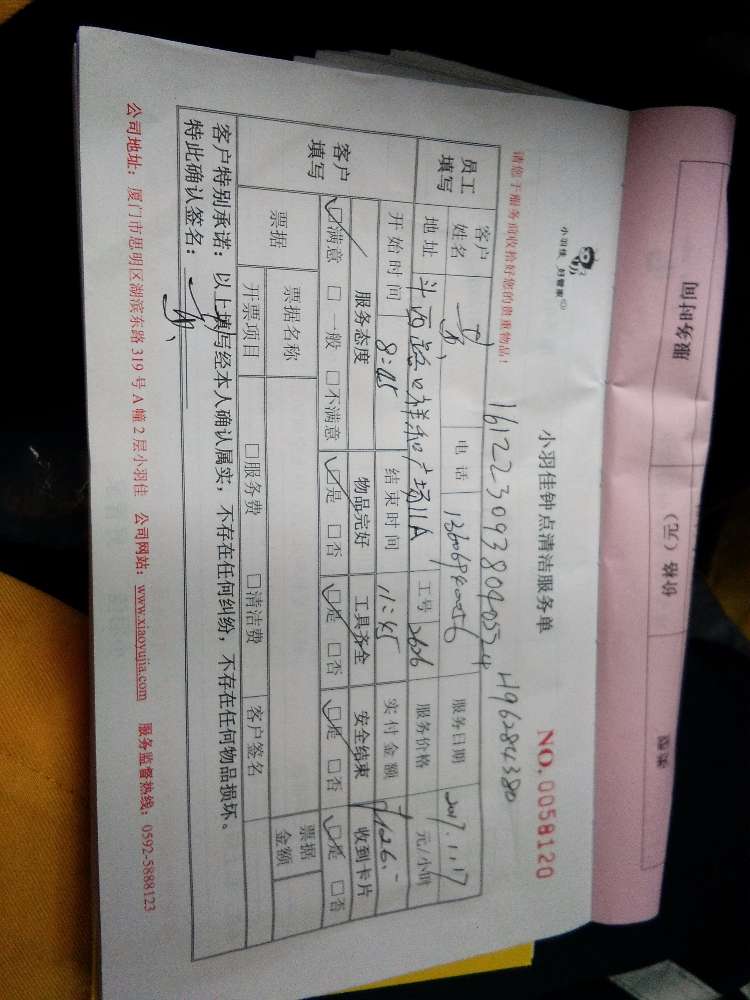 服务时间 价格（元） 签字
小羽佳 好管家
小羽佳钟点清洁服务单 NO.0058120
请您于服务前收拾好您的贵重物品！
16122309380405524 H96284380
员工填写 客户姓名 黄 电话 13606940056 服务日期 2017.1.17
地址 斗西路口祥和广场11A 工号 2626 服务价格 元/小时
开始时间 8:45 结束时间 11:45 实付金额 126.-
客户填写 服务态度 物品完好 工具齐全 安全结束 收到卡片
☑满意 □一般 □不满意 ☑是 □否 ☑是 □否 ☑是 □否 ☑是 □否
票据 票据名称 客户签名 票据金额
开票项目 □服务费 □清洁费
客户特别承诺：以上填写经本人确认属实，不存在任何纠纷，不存在任何物品损坏。
特此确认签名：
公司地址：厦门市思明区湖滨东路 319 号 A 幢 2 层小羽佳 公司网站：www.xiaoyujia.com 服务监督热线：0592-5888123